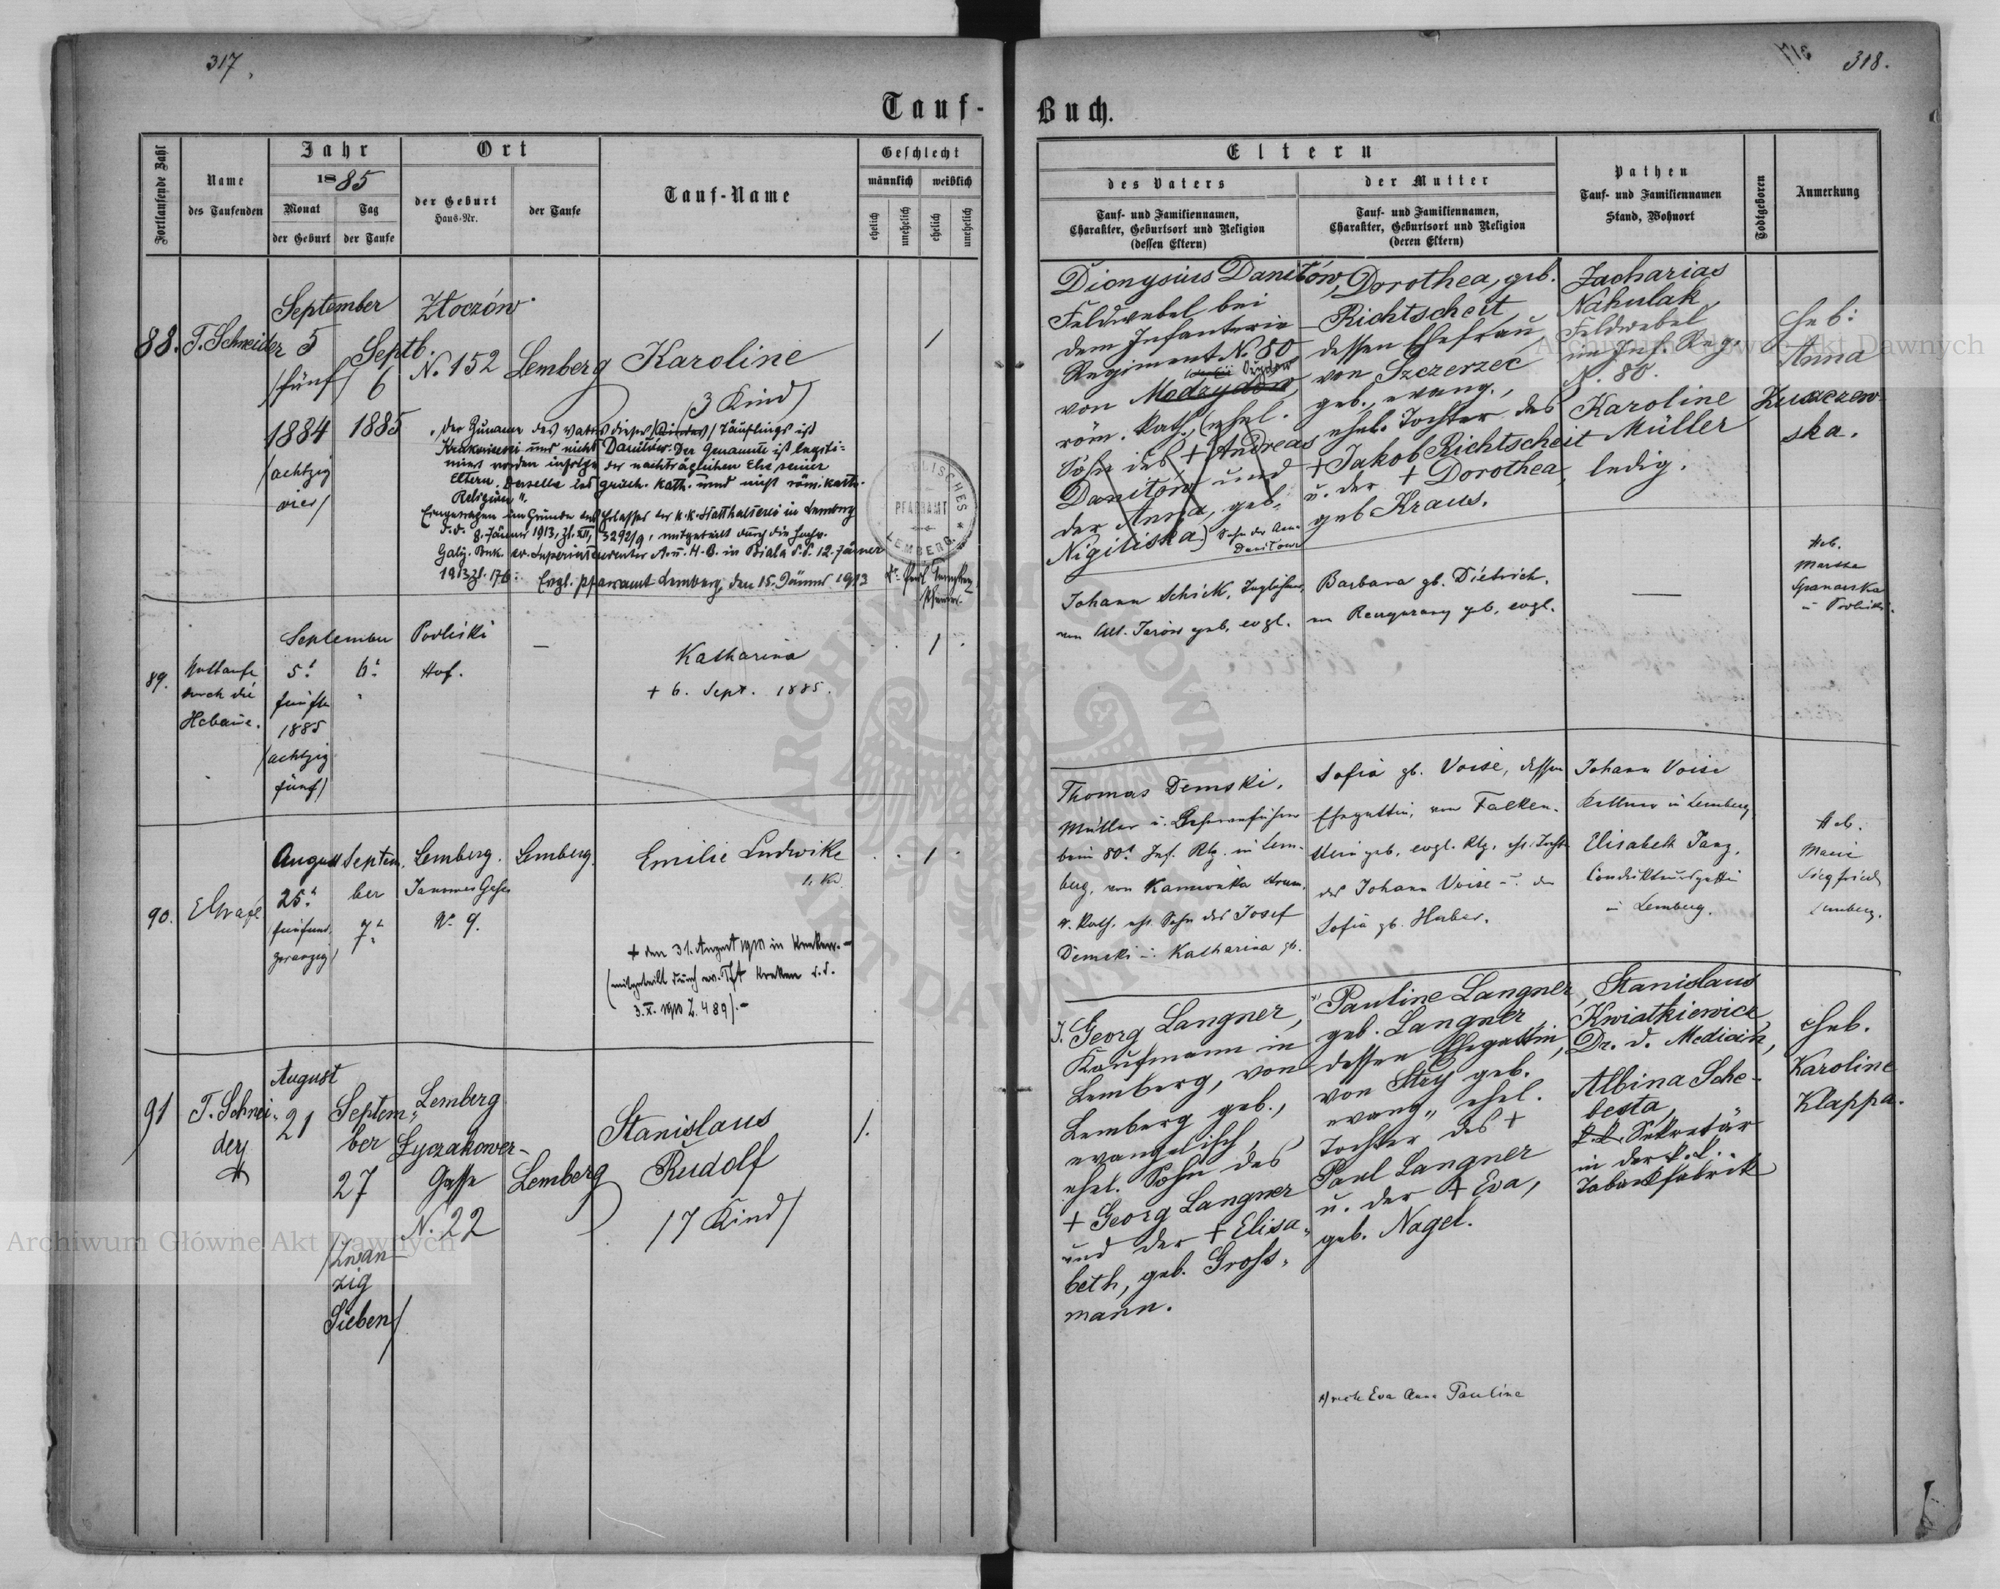 317.
318.
Tauf-Buch.
Fortlaufende Zahl
Name
des Taufenden
Jahr
1885
Monat
der Geburt
Tag
der Taufe
Ort
der Geburt
Haus-Nr.
der Taufe
Tauf-Name
Geschlecht
männlich
weiblich
ehelich
unehelich
ehelich
unehelich
Eltern
des Vaters
Tauf- und Familiennamen,
Charakter, Geburtsort und Religion
(dessen Eltern)
der Mutter
Tauf- und Familiennamen,
Charakter, Geburtsort und Religion
(deren Eltern)
Pathen
Tauf- und Familiennamen
Stand, Wohnort
Todtgeboren
Anmerkung
88.
T. Schneider
September
5
/fünf/
1884
/achtzig
vier/
Septb.
6
1885
Złoczów
N. 152
Lemberg
Karoline
/3 Kind/
1
der Zuname des Vaters dieses /Kindes/ Täuflings ist
und nicht Danitów. Der Genannte ist legiti-
miert worden infolge der nachträglichen Ehe seiner
Eltern. Derselbe ist griech. kath. und nicht röm. kath.
Religion".
Eingetragen im Grunde des Erlasses der k.k. Statthalterei in Lemberg
d.d. 8. Jänner 1913, Zl. XII, 3292/9, mitgeteilt durch die
Superintendentur A. u. H. B. in Biala d.d. 12. Jänner
1913 Zl. 176: Evgl. Pfarramt Lemberg, den 15. Jänner 1913
PFARRAMT
LEMBERG
Dionysius Danitów,
Feldwebel bei
dem Infanterie-
Regiment N. 80
von
röm. kath., (ehel.
Sohn des + Andreas
Danitów und
der Anna, geb.
Nigiliska)
Dorothea, geb.
Richtscheit
dessen Ehefrau
von Szczerzec
geb., evang.,
ehel. Tochter des
+ Jakob Richtscheit
u. der + Dorothea
geb Kraus.
Zacharias
Nahulak,
Feldwebel
im Inf. Reg.
N. 80.
Karoline
Müller
ledig.
Heb:
Anna
ska.
89.
Nottaufe
durch die
Hebame.
September
5.
fünfte
1885
/achtzig
fünf/
6.
Podliski
Hof.
—
Katharina
+ 6. Sept. 1885.
1
Johann Schick,
geb, evgl.
Barbara gb. Dietrich,
geb, evgl.
—
Heb.
90.
EGrafe
August
25.
fünfund
zwanzig/
Septem-
ber
7.
Lemberg.
N. 9.
Lemberg.
Emilie Ludwike
1. Kd.
1
+ den 31. August 1910 in Krakau.-
(mitgeteilt durch ev. Pft Krakau d.d.
3.X. 1910 Z. 489).-
Thomas Demski,
Müller u.
beim 80. Inf. Rg. in Lem-
berg, von Kamionka
r. kath. ehl. Sohn des Josef
Demski u. Katharina gb.
Sofia gb. Voise, dessen
Ehegattin, von Falken-
stein geb, evgl. Rlg, ehl. Tocht
des Johann Voise u. der
Sofia gb. Huber.
Johann Voise
Kellner in Lemberg
Elisabeth Tanz,
Condukteursgattin
in Lemberg.
Heb.
Marie
Siegfried
Lemberg.
91
T. Schnei-
der
August
21
Septem-
ber
27
/Zwan-
zig
Sieben/
Lemberg
Łyczakower-
Gasse
N. 22
Lemberg
Stanislaus
Rudolf
/7 Kind/
1.
Georg Langner,
Kaufmann in
Lemberg, von
Lemberg geb.,
evangelisch,
ehel. Sohn des
+ Georg Langner
und der + Elisa-
beth, geb. Gross-
mann.
Pauline Langner,
geb. Langner
dessen Ehegattin,
von Stry geb.
evang., ehel.
Tochter des +
Paul Langner
u. der + Eva,
geb. Nagel.
Stanislaus
Kwiatkiewicz,
Dr. d. Medicin,
Albina Sche-
besta,
k.k. Sekretär
in der k.k.
Tabackfabrik
Heb.
Karoline
Klappa.
recte Eva Anna Pauline
Archiwum Główne Akt Dawnych
Archiwum Główne Akt Dawnych
ARCHIWUM GŁÓWNE AKT DAWNYCH